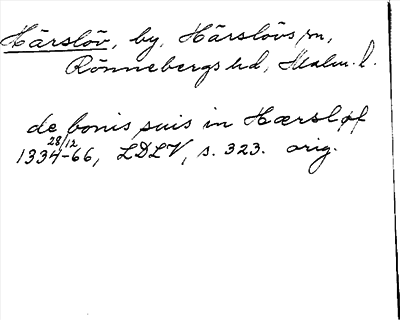 Härslöv, by, Härslövs sn,
Rönnebergs hd, Malm. l.
de bonis suis in Hærsløf
28/12
1334-66, LDLV, s. 323. orig.